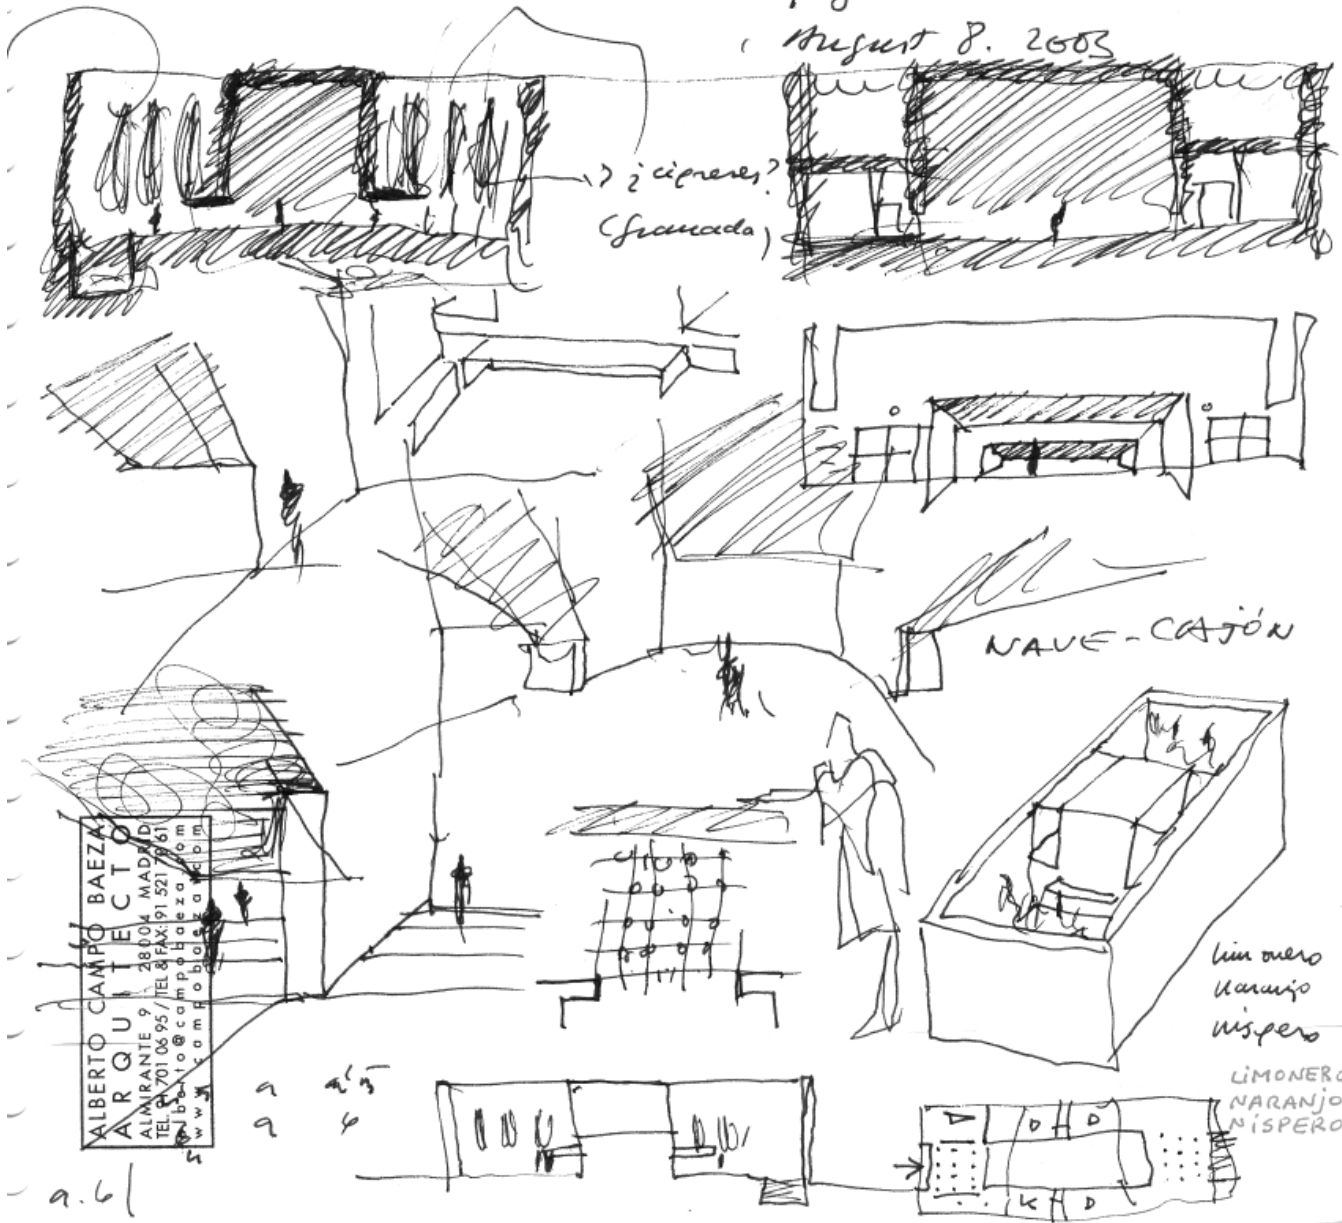 August 8. 2003
¿cipreses?
(Granada)
NAVE-CAJÓN
limonero
naranjo
níspero
LIMONERO
NARANJO
NÍSPERO
D D
K D
ALBERTO CAMPO BAEZA
ARQUITECTO
ALMIRANTE 9 28004 MADRID
TEL. 91 701 06 95 / TEL & FAX: 91 521 70 61
alberto@campobaeza.com
www.campobaeza.com
a.6